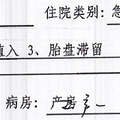 住院类别: 急
植入 3、胎盘滞留
病房: 产房